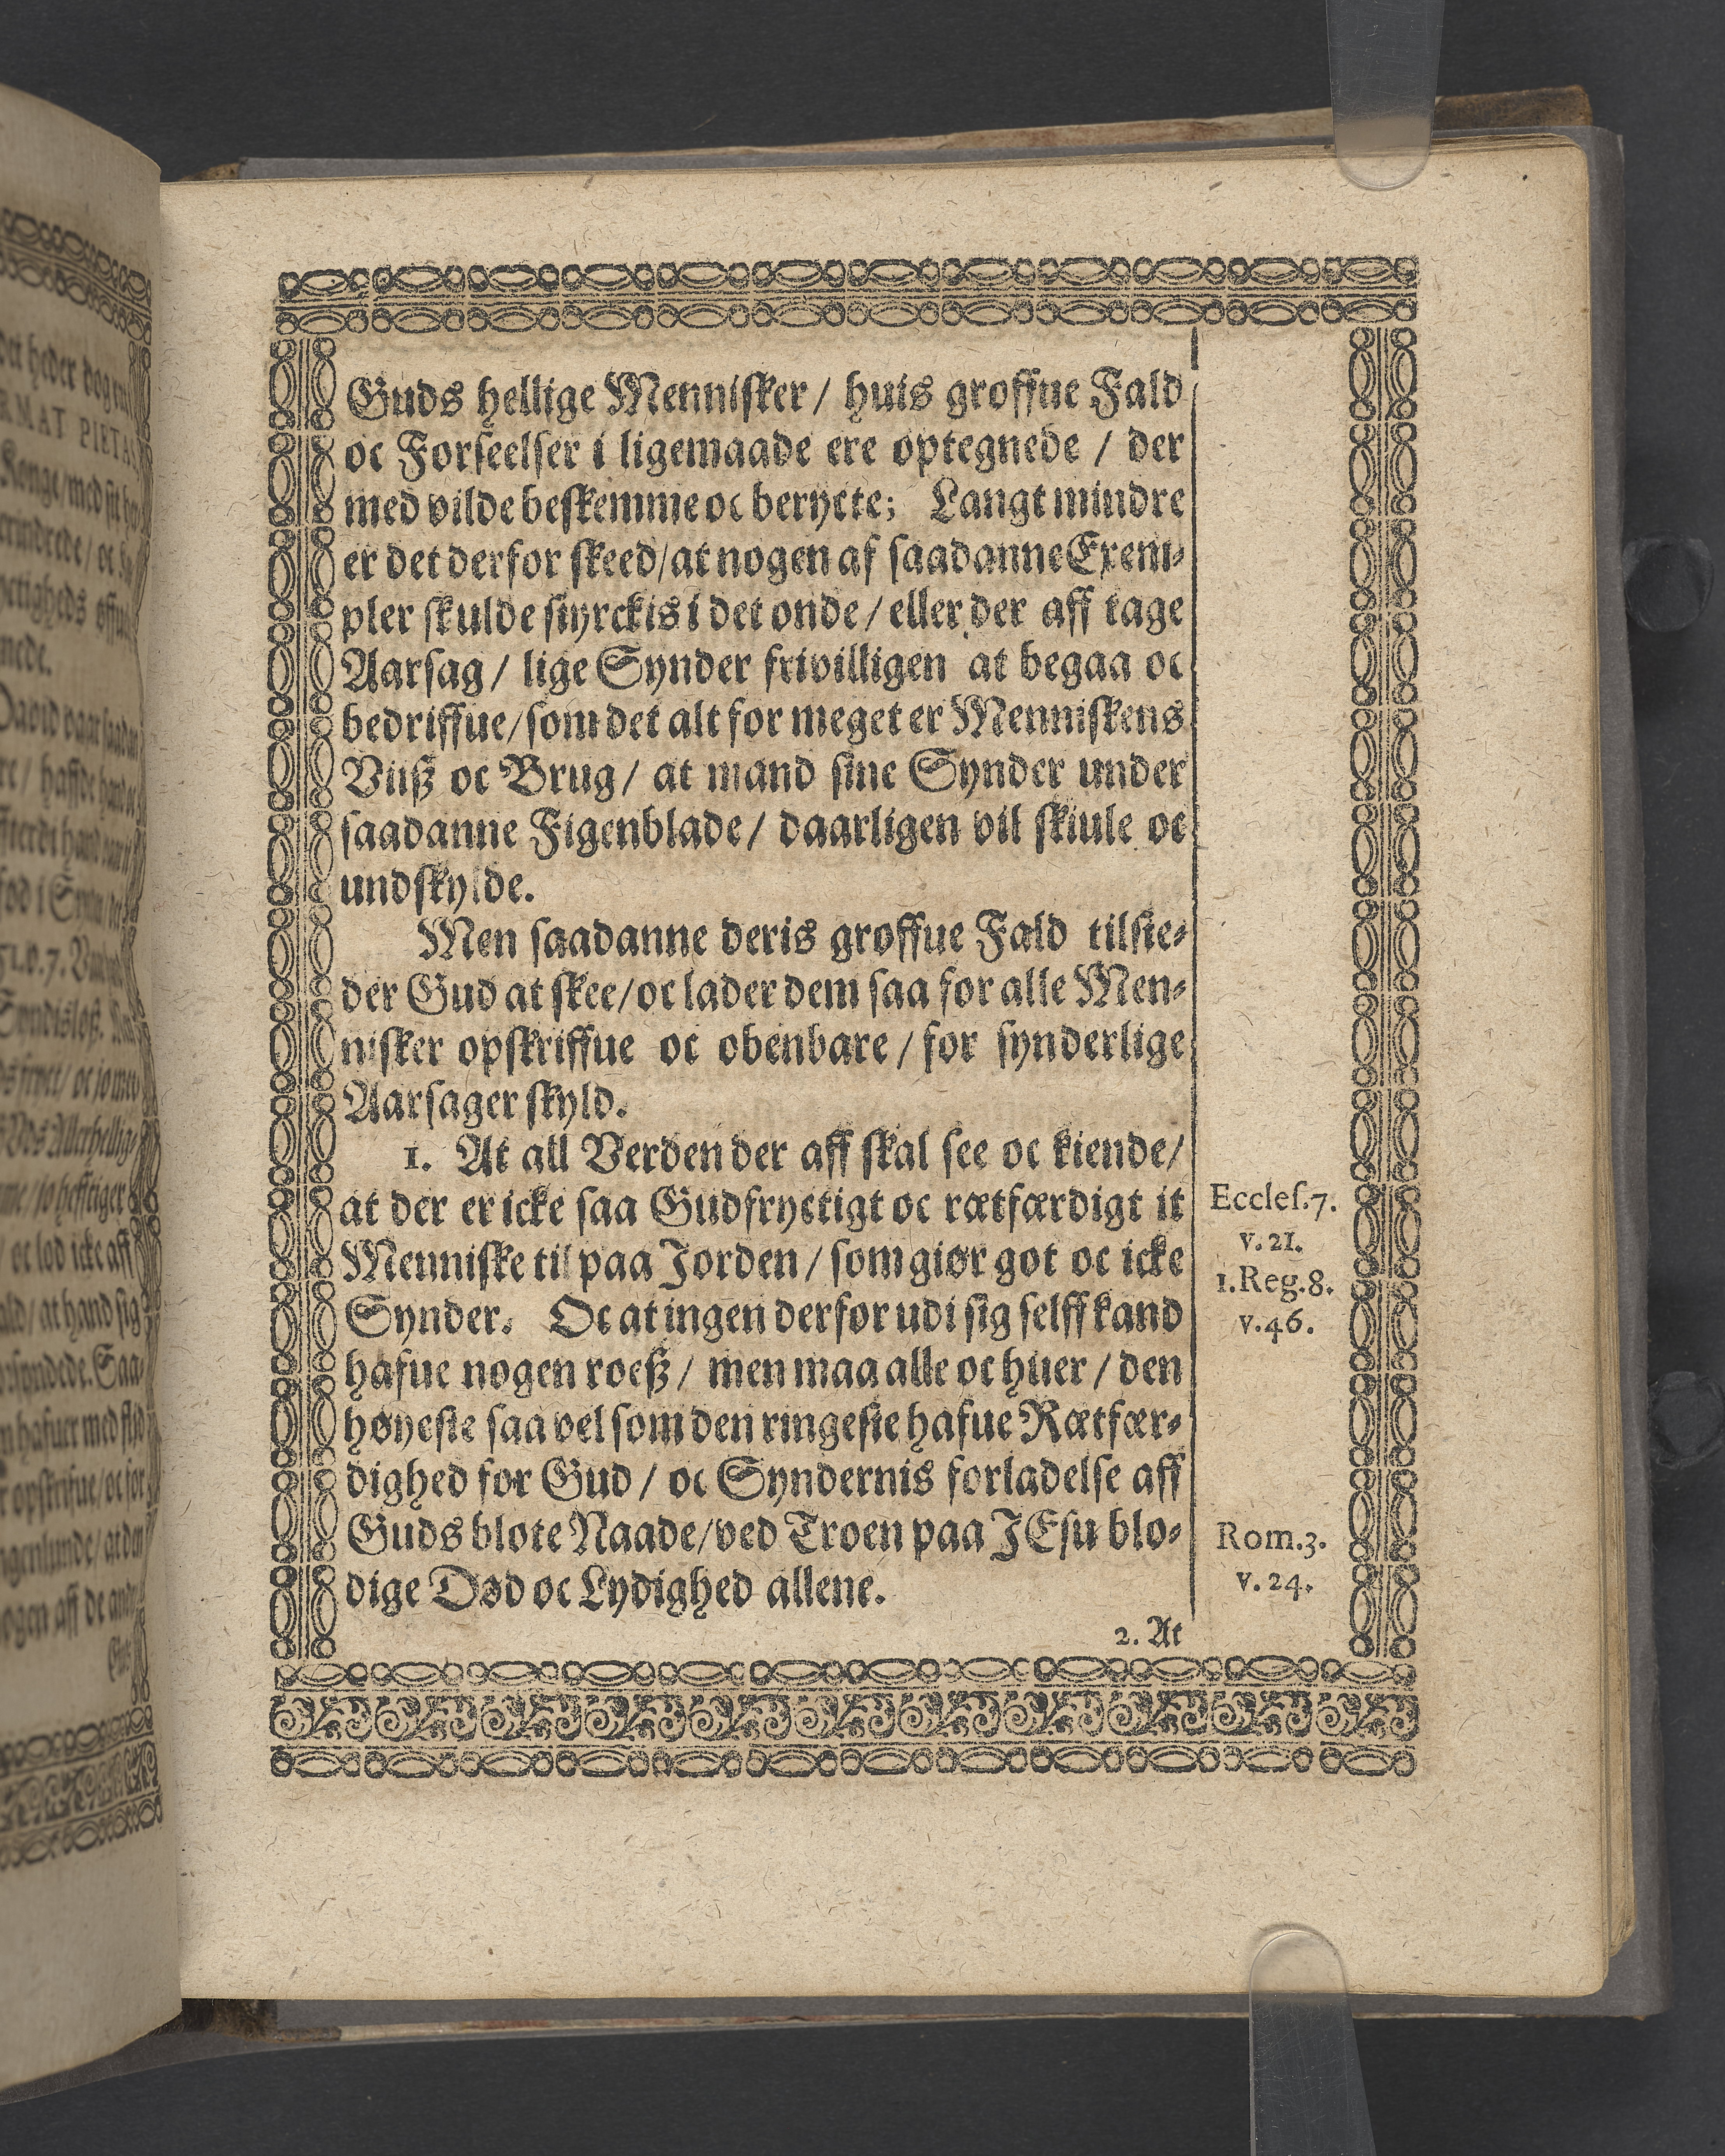 Guds hellige Mennisker / huis groffue Fald
oc Forseelser i ligemaade ere optegnede / der
med vilde beskemme oc beryčte; Langt mindre
er det derfor skeed/at nogen af saadanne Exem-
pler skulde styrckis i det onde / eller der aff tage
Aarsag / lige Synder frivilligen at begaa oc
bedriffue/som det alt for meget er Menniskens
Viiß oc Brug / at mand sine Synder under
saadanne Figenblade / daarligen vil skiule oc
undskylde.
Men saadanne deris groffue Fald tilste-
der Gud at skee/oc lader dem saa for alle Men-
nisker opskriffue oc obenbare / for synderlige
Aarsager skyld.
1. At all Verden der aff skal see oc kiende/
at der er icke saa Gudfryctigt oc rætfærdigt it
Menniske til paa Jorden / som giør got oc icke
Synder. Oc at ingen derfor udi sig selff kand
hafue nogen roeß / men maa alle oc huer / den
høyeste saa vel som den ringeste hafue Rætfær-
dighed for Gud / oc Syndernis forladelse aff
Guds blote Naade/ved Troen paa JEsu blo-
dige Død oc Lydighed allene.
2. At
Eccles.7.
v.21.
1.Reg.8.
v.46.
Rom.3.
v.24.